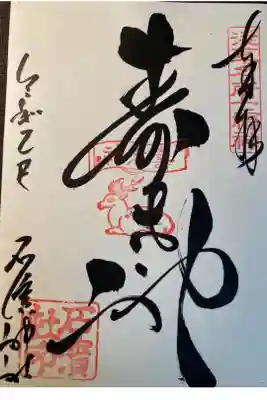 奉拝
寿老神
令和乙巳
石濱神社
石濱
神社